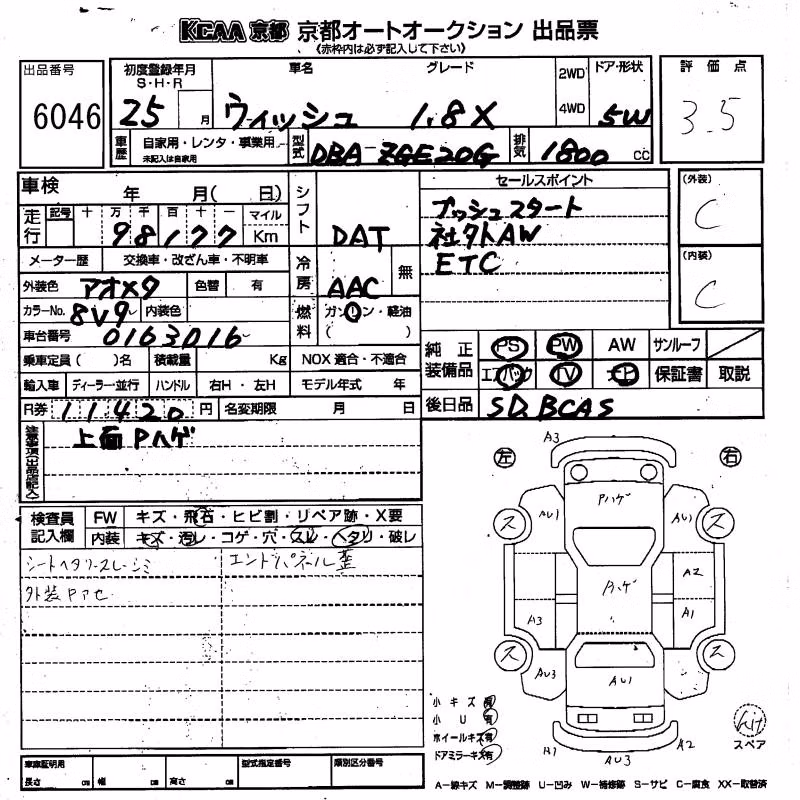 KCAA 京都 京都オートオークション 出品票
《赤枠内は必ず記入して下さい》
出品番号
6046
初度登録年月
S・H・R
25 月
車名
ウィッシュ
グレード
1.8X
2WD
4WD
ドア・形状
5W
評価点
3.5
車歴
自家用・レンタ・事業用
未記入は自家用
型式
DBA-ZGE20G
排気
1800 CC
車検 年 月( 日)
走行
記号 十 万 千 百 十 一 マイル
98177 Km
メーター歴 交換車・改ざん車・不明車
外装色 アオメタ 色替 有
カラーNo. 8V9 内装色
車台番号 0163016
乗車定員( )名 積載量 Kg NOX 適合・不適合
輸入車 ディーラー・並行 ハンドル 右H・左H モデル年式 年
R券 11420 円 名変期限 月 日
シフト
DAT
冷房
AAC 無
燃料
ガソリン・軽油
( )
セールスポイント
プッシュスタート
社外AW
ETC
(外装)
C
(内装)
C
純正装備品
PS PW AW サンルーフ
エアバック TV ナビ 保証書 取説
後日品 SD.BCAS
注意事項(出品店記入)
上面Pハゲ
検査員記入欄
FW キズ・飛石・ヒビ割・リペア跡・X要
内装 キズ・汚レ・コゲ・穴・スレ・ヘタリ・破レ
シートヘタリ・スレ・シミ エンドパネル歪
外装Pアセ
左
右
A3
Pハゲ
AU1
AU1
ス
ス
A2
Pハゲ
A3
A1
ス
ス
AU3
AU1
A1
A2
AU3
小キズ 有
小U 有
ホイールキズ 有
ドアミラーキズ 有
kit
スペア
車庫証明用
長さ cm 幅 cm 高さ cm
型式指定番号
類別区分番号
A－線キズ M－調整跡 U－凹み W－補修跡 S－サビ C－腐食 XX－取替済